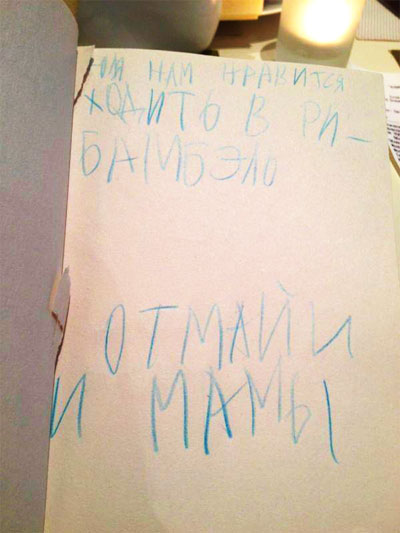 ЮЛЯ НАМ НРАВИТСЯ
ХОДИТЬ В РИ-
БАМБЭЛО
ОТМАЙИ
И МАМЫ